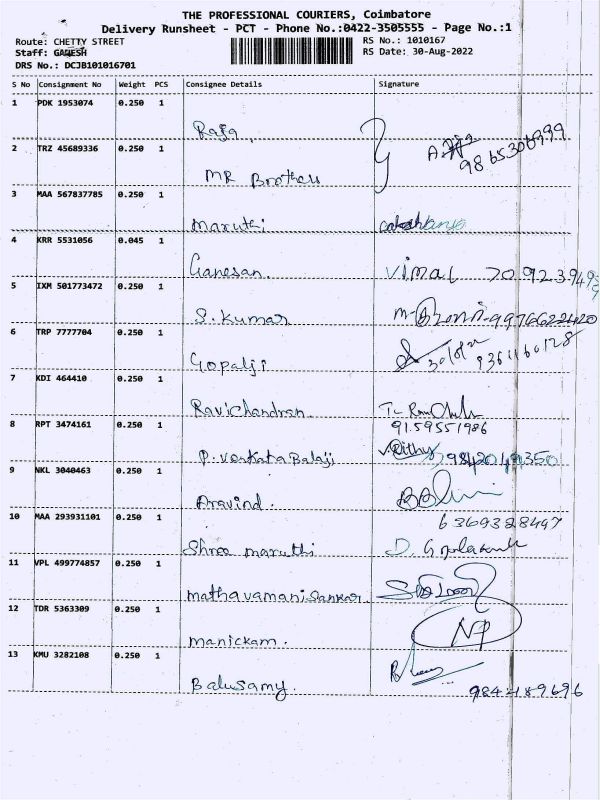 THE PROFESSIONAL COURIERS, Coimbatore
Delivery Runsheet - PCT - Phone No.:0422-3505555 - Page No.:1
Route: CHETTY STREET
RS No.: 1010167
Staff: GANESH
RS Date: 30-Aug-2022
DRS No.: DCJB101016701
S No Consignment No Weight PCS Consignee Details Signature
1 PDK 1953074 0.250 1
Raja
2 TRZ 45689336 0.250 1
9865306999
MR Brothers
3 MAA 567837785 0.250 1
Maruthi
4 KRR 5531056 0.045 1
Ganesan. Vimal
5 IXM 501773472 0.250 1
S. Kumar 9976622420
6 TRP 7777704 0.250 1
Gopalji 9361160128
7 KDI 464410 0.250 1
Ravichandran
9159551986
8 RPT 3474161 0.250 1
P. Venkata Balaji
9 NKL 3040463 0.250 1
Aravind.
6369328497
10 MAA 293931101 0.250 1
Shree maruthi
11 VPL 499774857 0.250 1
mathavamani Sankar.
12 TDR 5363309 0.250 1
NP
manickam.
13 KMU 3282108 0.250 1
Balusamy. 9842189696